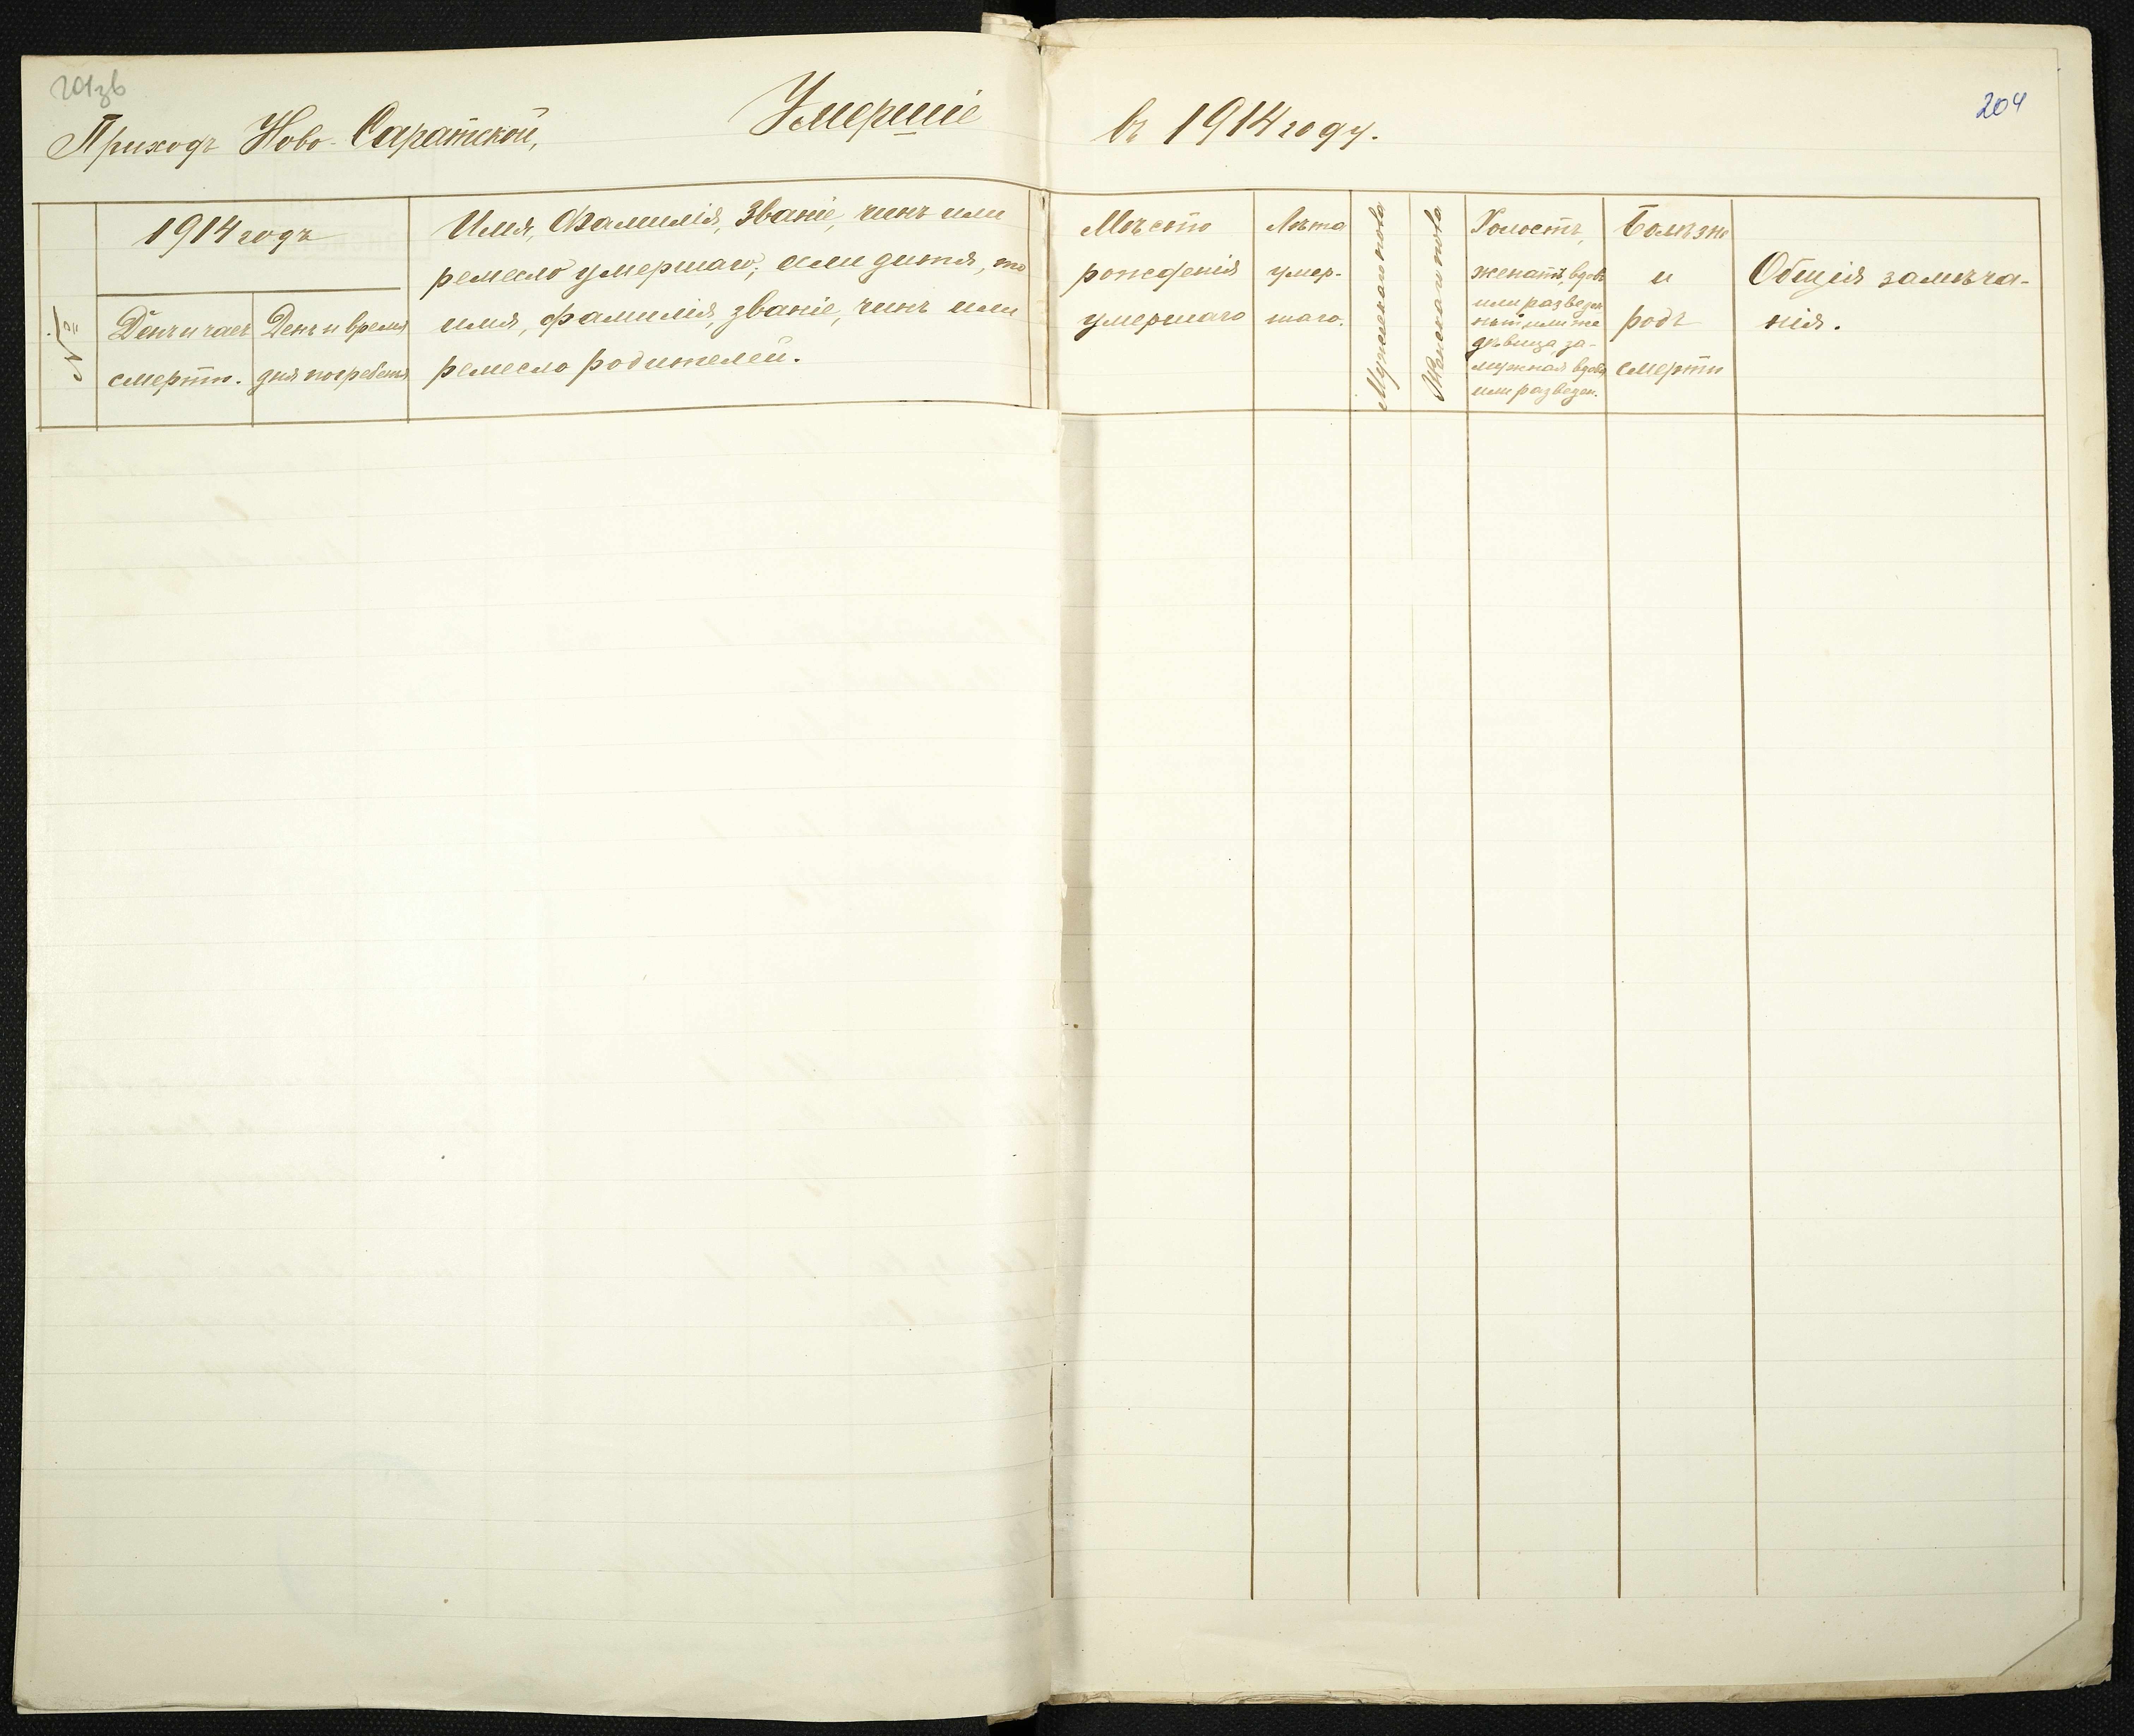 Умершіе
въ 1914 году.
204
Приходъ Ново-Саратской,
№
1914 годъ
День и часъ
смерти.
День и время
дня погребенія
Имя, Фамилія, Званіе, чинъ или
ремесло умершаго; если дитя, то
имя, фамилія, званіе, чинъ или
ремесло родителей.
Мѣсто
рожденія
умершаго
Лѣта
умер-
шаго.
Мужескаго пола
Женскаго пола
Холостъ,
женатъ, вдовъ
или разведен
дѣвица, за-
мужная вдова
или разведен.
Болѣзнь
и
родъ
смерти
Общія замѣча-
нія.